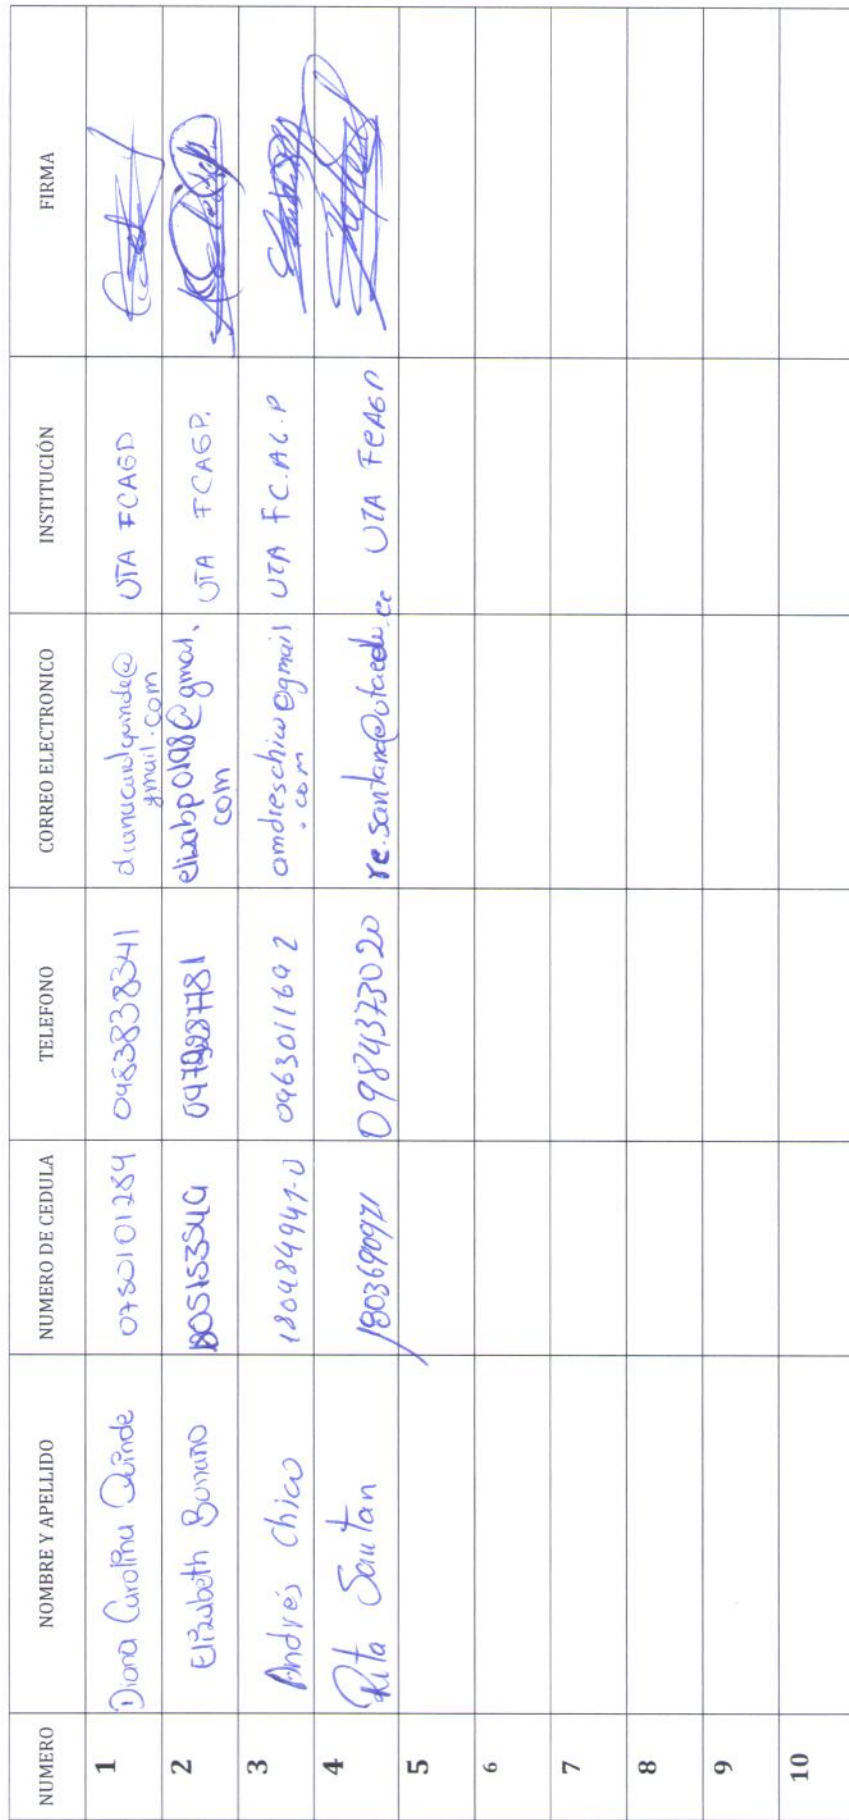 NUMERO NOMBRE Y APELLIDO NUMERO DE CEDULA TELEFONO CORREO ELECTRONICO INSTITUCIÓN FIRMA
1 Diana Carolina Quinde 0750101284 UTA FCAGP
gmail.com
2 Elizabeth 180515354 elizabp0198@gmail. UTA FCAGP.
com
3 Andrés Chico 180484947-0 0963011692 andreschico@gmail UTA FC.AG.P
.com
4 Rita Santan 1803690971 0984373020 re.santana@uta.edu.ec UTA FCAGP
5
6
7
8
9
10